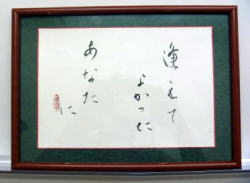 逢えて
よかった
あなた
に